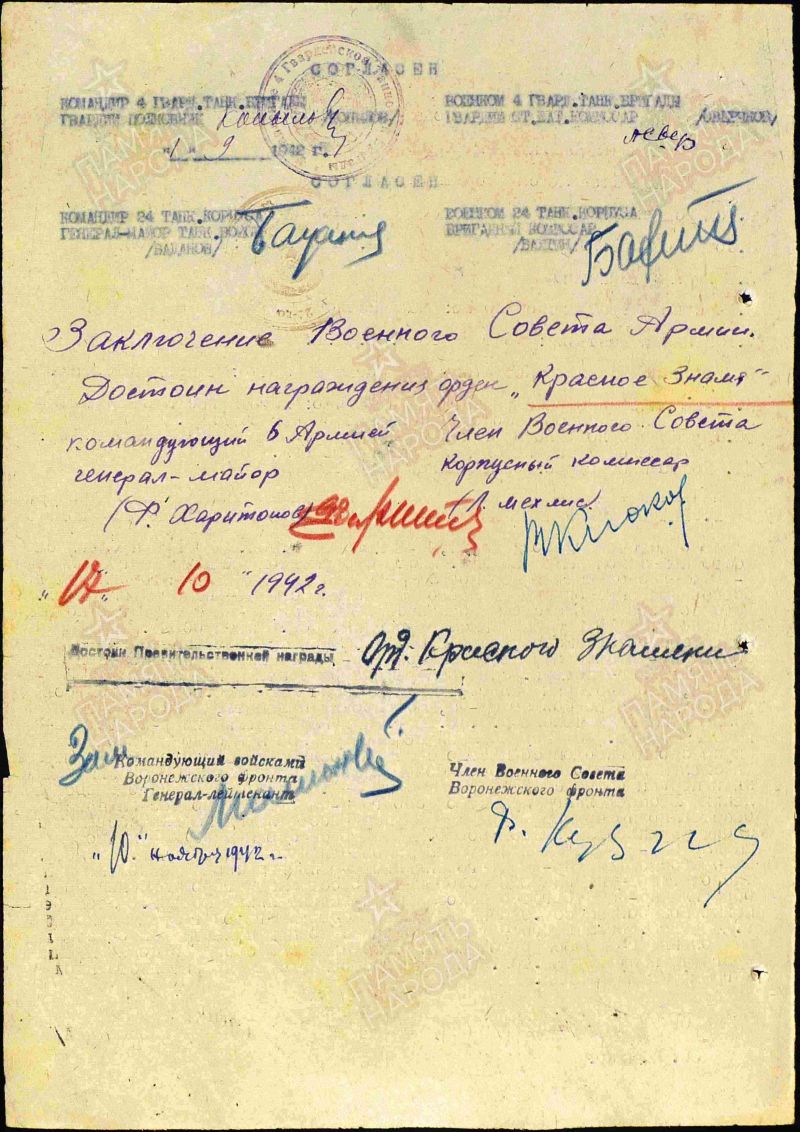 СОГЛАСЕН
КОМАНДИР 4 ГВАРД.ТАНК.БРИГАДЫ
ГВАРДИИ ПОЛКОВНИК Копылов /КОПЫЛОВ/
"1" 9 1942 г.
ВОЕНКОМ 4 ГВАРД.ТАНК.БРИГАДЫ
ГВАРДИИ СТ.БАТ.КОМИССАР
СОГЛАСЕН
КОМАНДИР 24 ТАНК.КОРПУСА
ГЕНЕРАЛ-МАЙОР ТАНК.ВОЙСК
/БАДАНОВ/
ВОЕНКОМ 24 ТАНК.КОРПУСА
БРИГАДНЫЙ КОМИССАР
/БАХТИН/
Заключение Военного Совета Армии.
Достоин награждения орден „Красное Знамя"
командующий 6 Армией
генерал-майор
(Ф. Харитонов)
Член Военного Совета
корпусный комиссар
(Л. Мехлис)
"17" 10 1942 г.
Достоин Правительственной награды Орд. Красного Знамени
Зам
Командующий войсками
Воронежского фронта
Генерал-лейтенант
Член Военного Совета
Воронежского фронта
"10." ноября 1942 г.
ПАМЯТЬ
НАРОДА